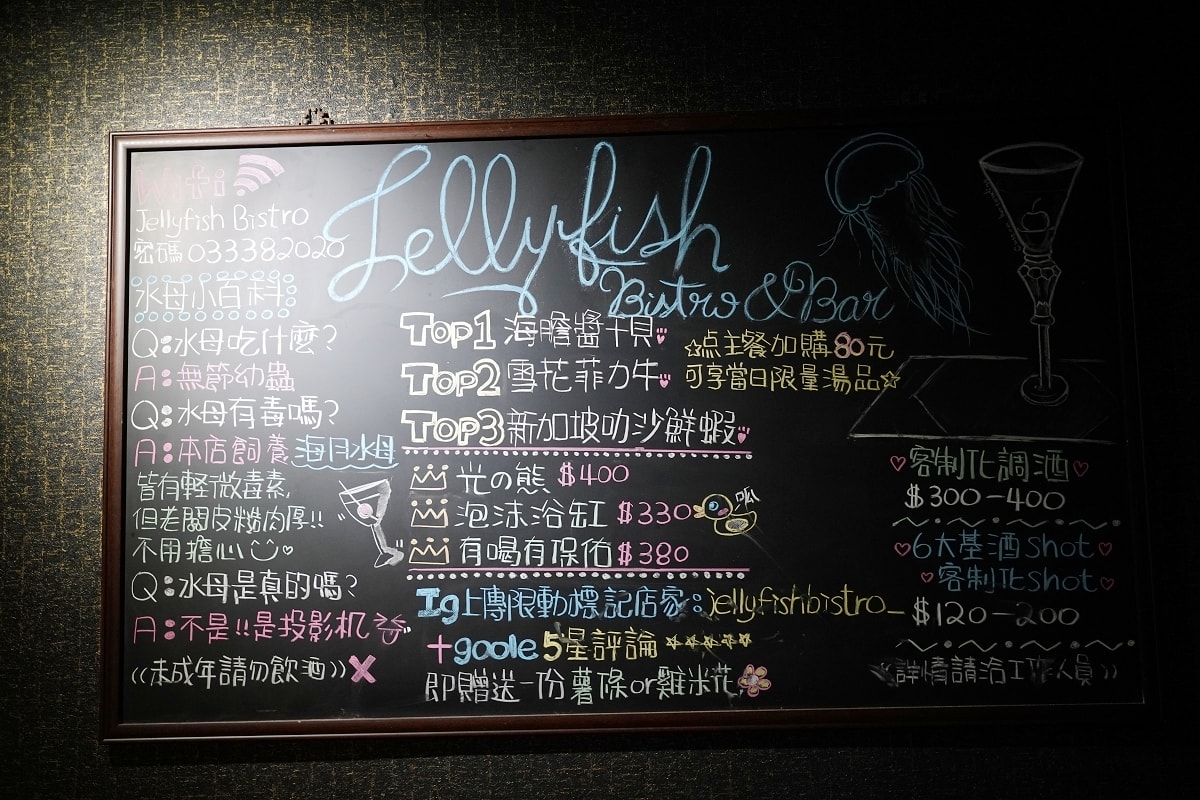 Wifi
Jellyfish Bistro
密碼 033382020
水母小百科
Q:水母吃什麼?
A:無節幼蟲
Q:水母有毒嗎?
A:本店飼養海月水母
皆有輕微毒素,
但老闆皮糙肉厚!!
不用擔心
Q:水母是真的嗎?
A:不是!!是投影机
((未成年請勿飲酒))X
Jellyfish
Bistro & Bar
Top1 海膽醬干貝
Top2 雪花菲力牛
Top3 新加坡叻沙鮮蝦
☆点主餐加購80元
可享當日限量湯品☆
光の熊 $400
泡沫浴缸 $330
呱
有喝有保佑 $380
Ig上傳限動標記店家:jellyfishbistro_
+goole 5星評論 ☆☆☆☆☆
即贈送一份薯條or雞米花,
♡客制化調酒♡
$300-400
♡6大基酒shot♡
♡客制化shot♡
$120-200
((詳情請洽工作人員))